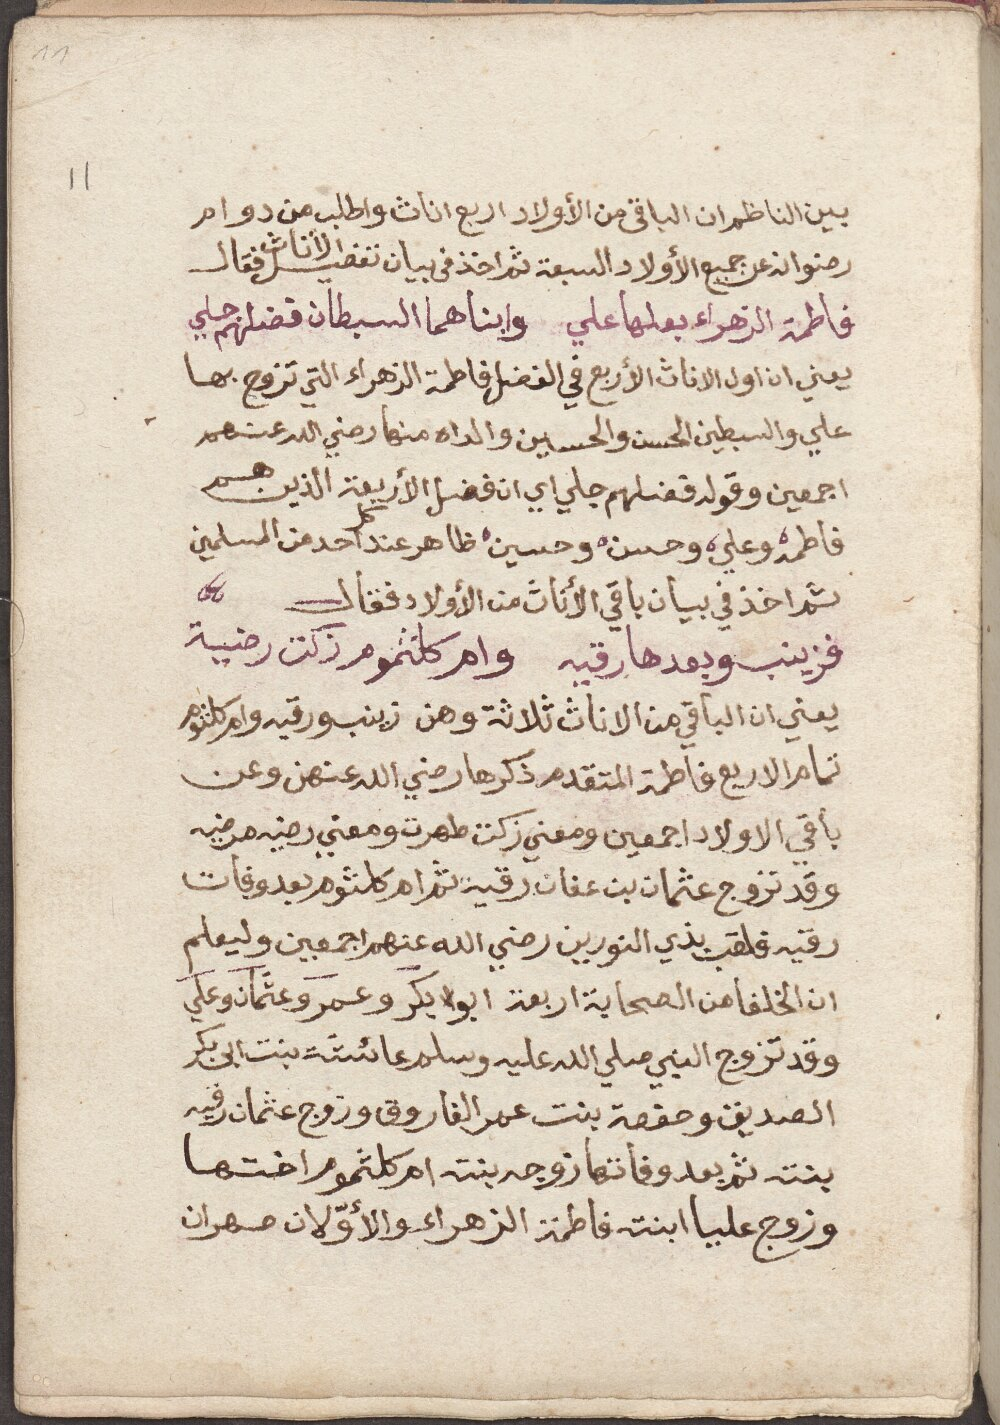 11
11
بين الناظم ان الباقي من الأولاد اربع اناث واطلب من دوام
رضوانه عن جميع الأولاد السبعة ثم اخذ في بيان تفضيل الأناث فقال
فاطمة الزهراء بعلها علي وابناهما السبطان فضلهم جلي
يعني ان اول الاناث الأربع في الفضل فاطمة الزهراء التي تزوج بها
علي والسبطين الحسن والحسين والداه منها رضي الله عنهم
اجمعين وقوله فضلهم جلي اي ان فضل الأربعة الذين هم
فاطمة وعلي وحسن وحسين ظاهر عند كل احد من المسلمين
ثم اخذ في بيان باقي الأناث من الأولاد فقال
فزينب وبعدها رقيه وام كلثوم زكت رضية
يعني ان الباقي من الاناث ثلاثة وهن زينب ورقيه وام كلثوم
تمام الاربع فاطمة المتقدم ذكرها رضي الله عنهن وعن
باقي الاولاد اجمعين ومعني زكت طهرت ومعني رضيه مرضيه
وقد تزوج عثمان بن عفان رقية ثم ام كلثوم بعد وفات
رقيه فلقب بذي النورين رضي الله عنهم اجمعين وليعلم
ان الخلفا من الصحابة اربعة ابوا بكر وعمر وعثمان وعلي
وقد تزوج النبي صلي الله عليه وسلم عائشة بنت ابي بكر
الصديق وحفصة بنت عمر الفاروق وزوج عثمان رقيه
بنته ثم بعد وفاتها زوجه بنته ام كلثوم اختها
وزوج عليا ابنته فاطمة الزهراء والأوّلان صهران